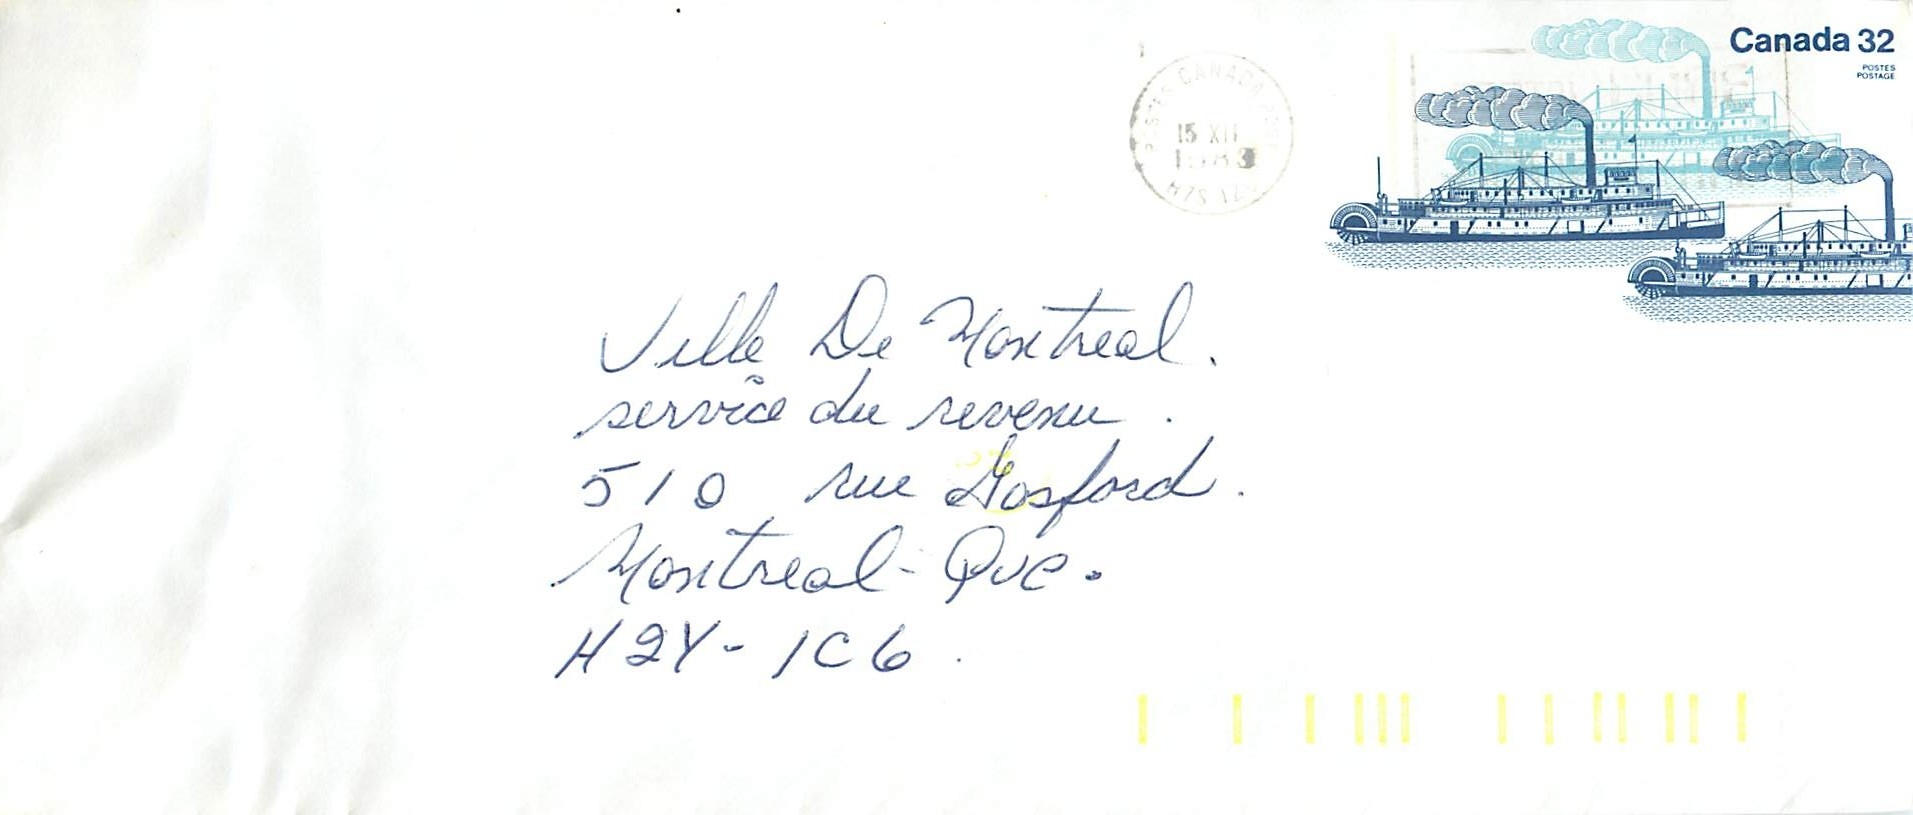 Canada 32
POSTES
POSTAGE
POSTES CANADA POST
15 XII
1983
Ville De Montreal.
service du revenu.
510 rue Gosford.
Montreal - Que.
H2Y - 1C6.